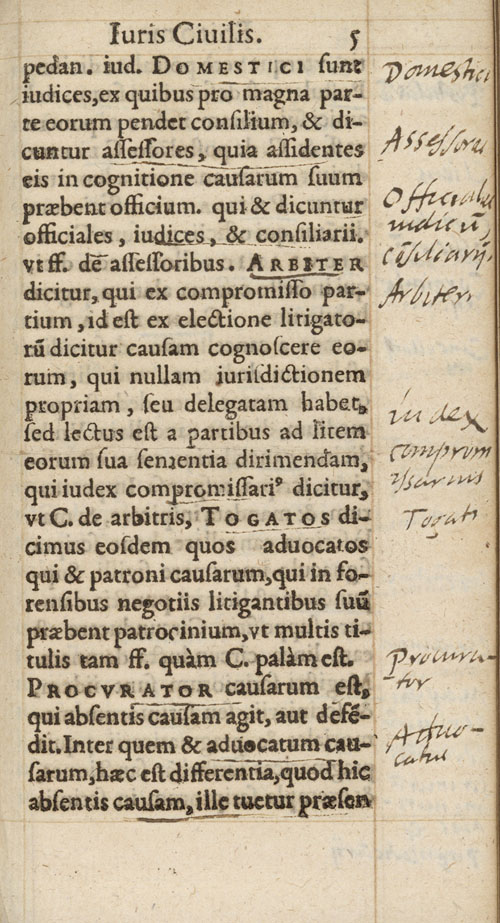 Iuris Ciuilis. 5
pedan. iud. DOMESTICI ſunt
iudices,ex quibus pro magna par-
te eorum pendet conſilium, & di-
cuntur aſſeſſores, quia aſſidentes
eis in cognitione cauſarum ſuum
præbent officium. qui & dicuntur
officiales, iudices, & conſiliarii.
vt ff. dē aſſeſſoribus. ARBITER
dicitur, qui ex compromiſſo par-
tium, id eſt ex electione litigato-
rū dicitur cauſam cognoſcere eo-
rum, qui nullam iurisdictionem
propriam, ſeu delegatam habet,
ſed lectus eſt a partibus ad litem
eorum ſua ſententia dirimendam,
qui iudex compromiſſariꝰ dicitur,
vt C. de arbitris, TOGATOS di-
cimus eoſdem quos aduocatos
qui & patroni cauſarum,qui in fo-
renſibus negotiis litigantibus ſuū
præbent patrocinium,vt multis ti-
tulis tam ff. quàm C. palàm eſt.
PROCVRATOR cauſarum eſt,
qui abſentis cauſam agit, aut defē-
dit.Inter quem & aduocatum cau-
ſarum,hæc eſt differentia,quod hic
abſentis cauſam, ille tuetur præſen
Domestici
Assessores
Officiales
iudicū,
cōsiliarij.
Arbiter.
iudex
comprom
issarius
Togati
Procura-
tor
Aduo-
catus